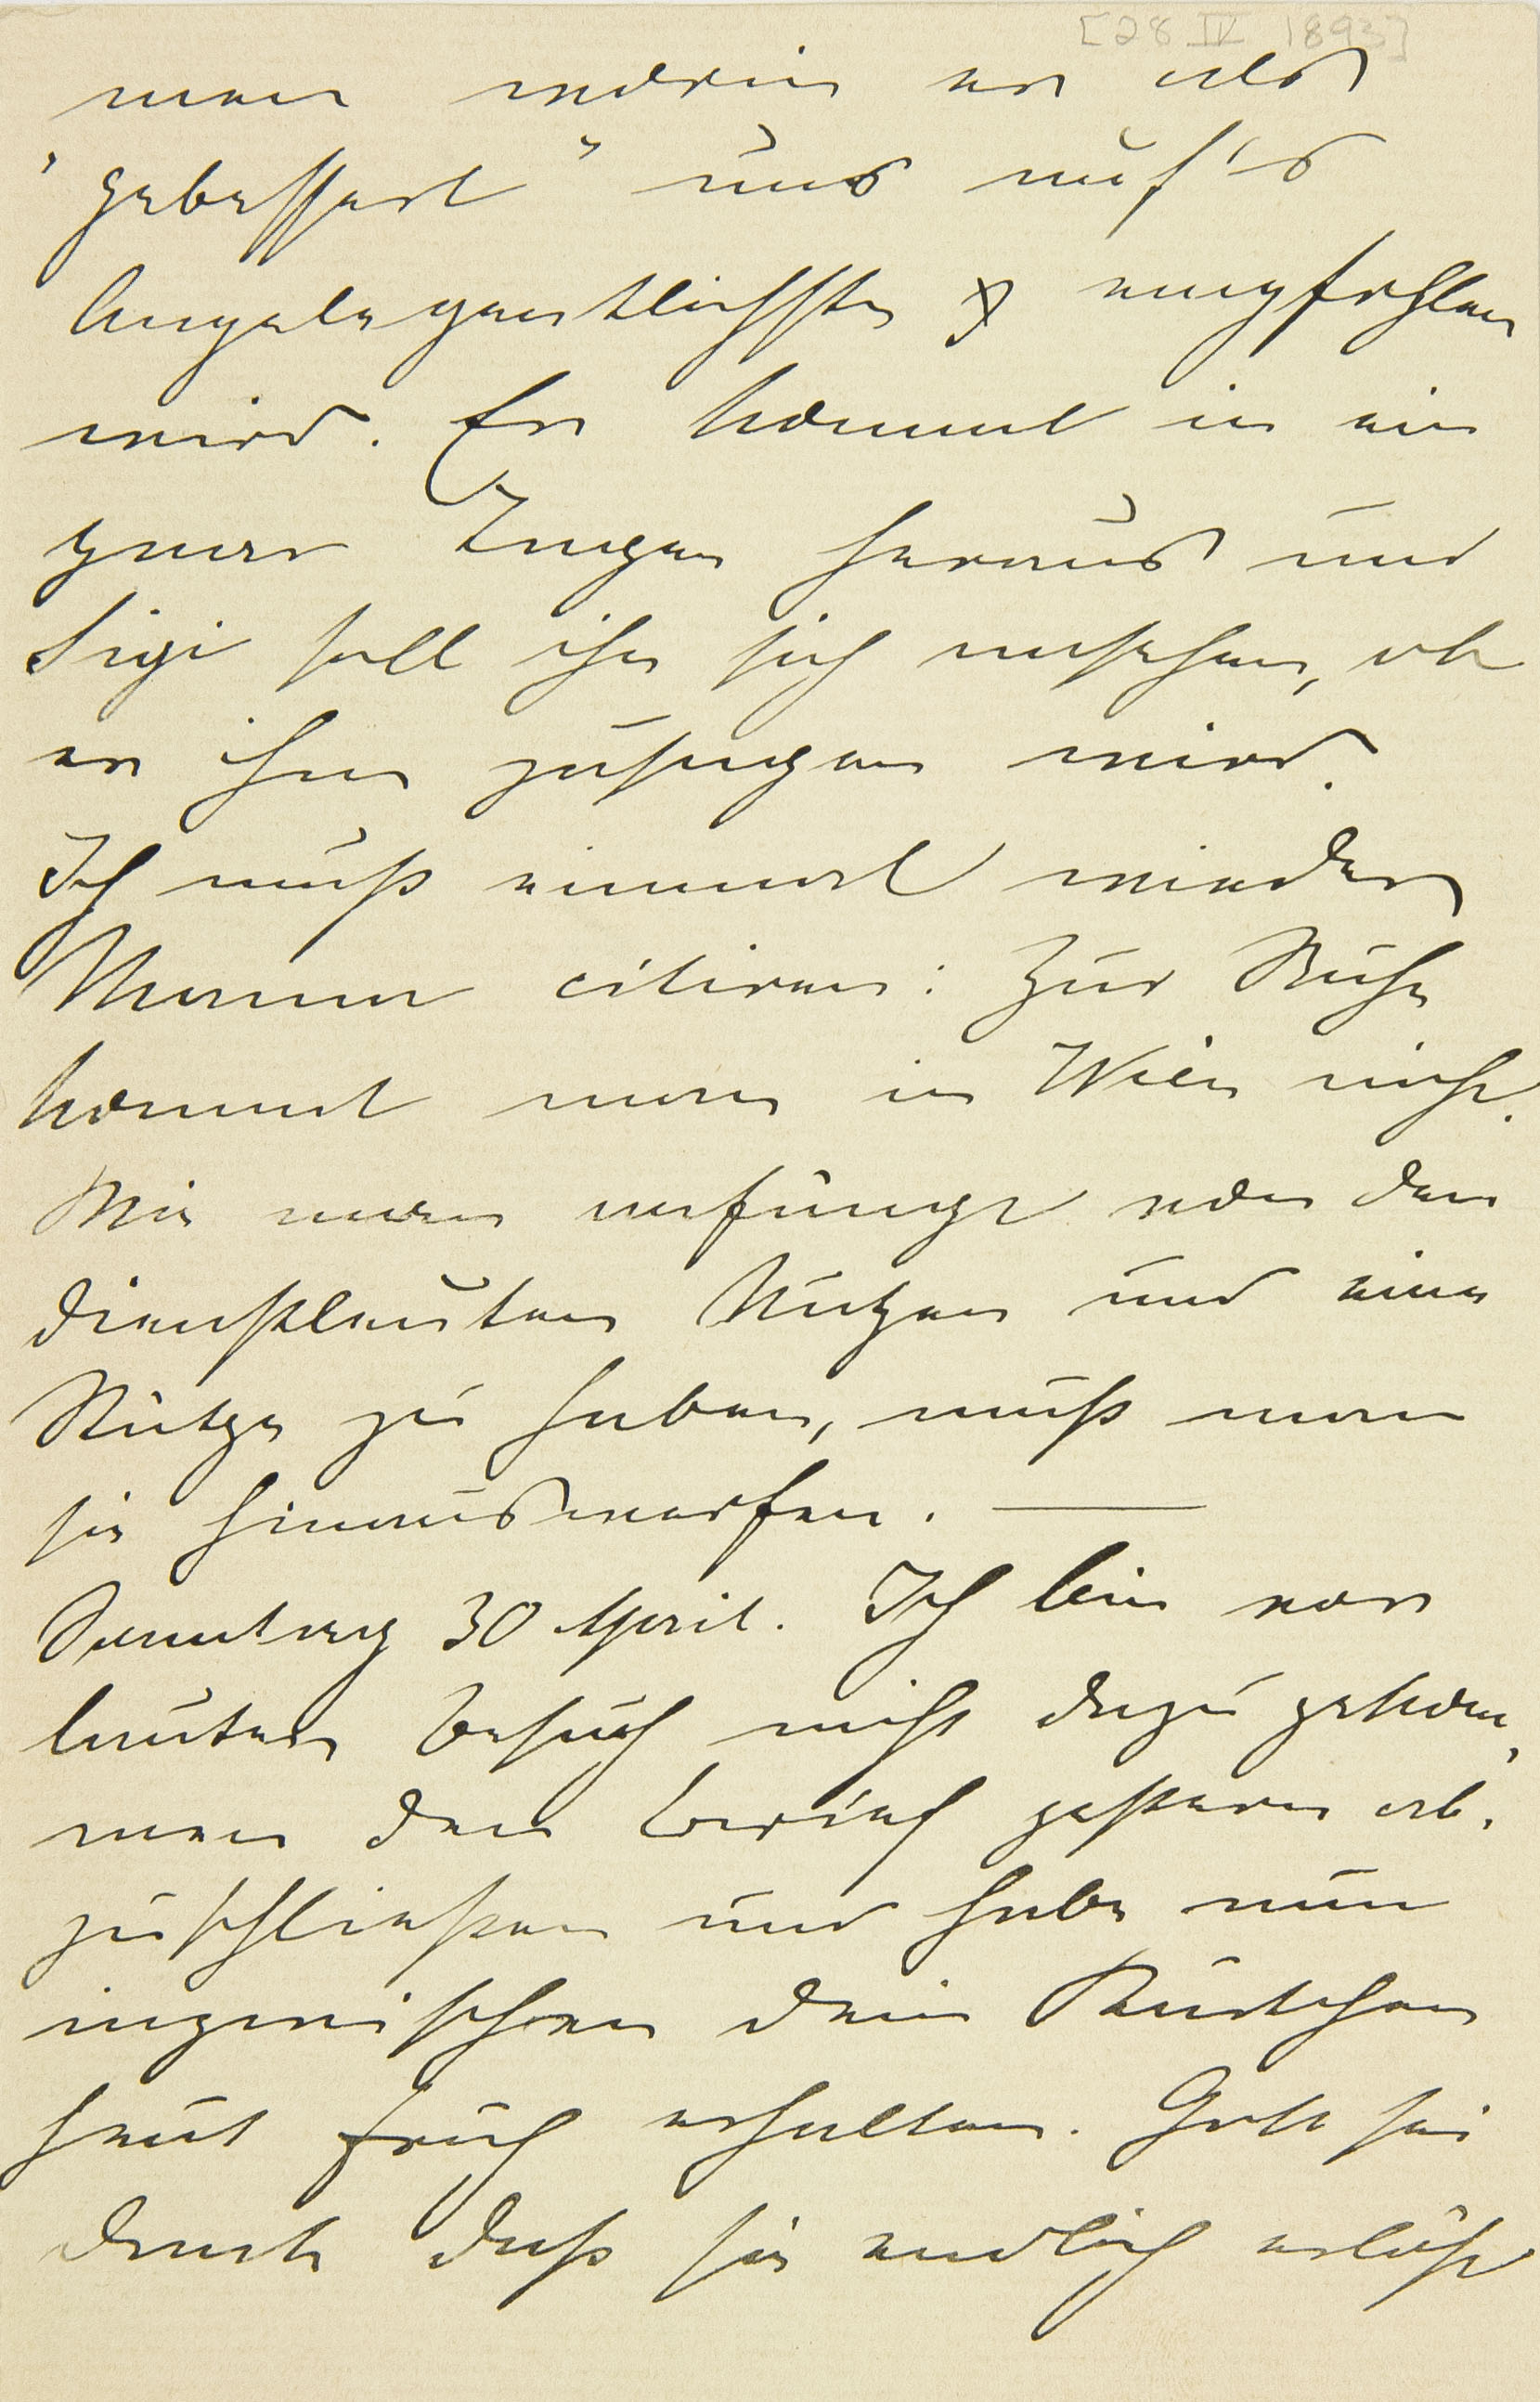 [28 IV 1893]
men worin er als
"gebessert" uns auf's
Angelegentlichste empfohlen
wird. Er kommt in ein
paar Tagen heraus und
Sigi soll ihn sich ansehen, ob
er ihm zusagen wird.
Ich muß einmal wieder
Mama citiren: Zur Ruhe
kommt man in Wien nicht.
Wie man anfängt von den
Dienstleuten Nutzen und eine
Stütze zu haben, muß man
sie hinauswerfen. —
Sonntag 30 April. Ich bin vor
lauter Besuch nicht dazu gekom,
men den Brief gestern ab,
zuschließen und habe nun
inzwischen dein Kärtchen
heut früh erhalten. Gott sei
Dank daß sie endlich erlöst